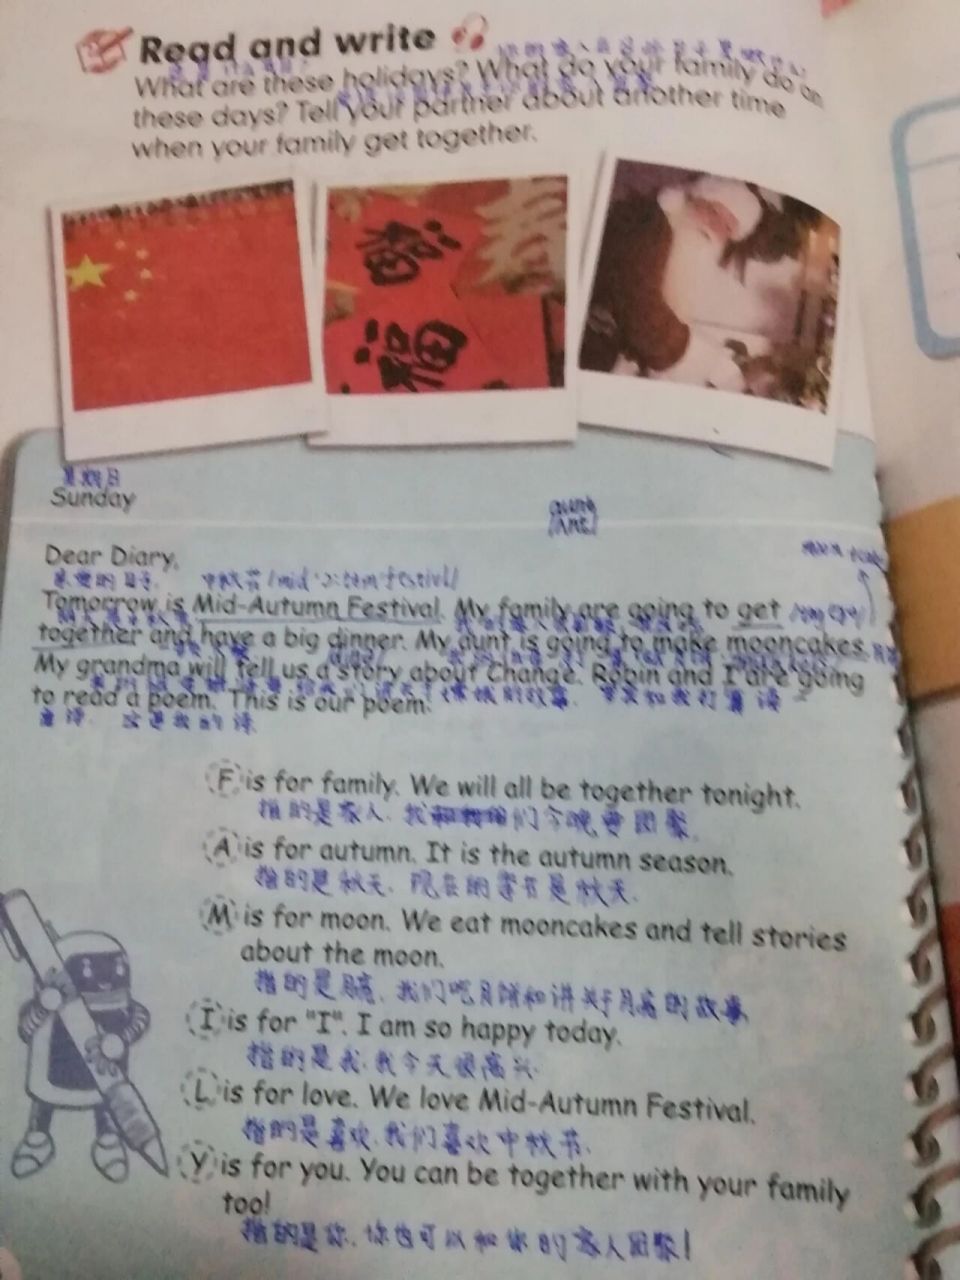 Read and write
What are these holidays? What do your family do on
these days? Tell your partner about another time
when your family get together.
春
福
星期日
Sunday
aunt
Dear Diary,
亲爱的日子. 中秋节
Tomorrow is Mid-Autumn Festival. My family are going to get
together and have a big dinner. My aunt is going to make mooncakes.
My grandma will tell us a story about Change. Robin and I are going
的故事.
to read a poem. This is our poem.
这是我的诗.
F is for family. We will all be together tonight.
指的是家人. 我们今晚要团聚.
A is for autumn. It is the autumn season.
指的是秋天. 现在的季节是秋天.
M is for moon. We eat mooncakes and tell stories
about the moon.
指的是月亮. 我们吃月饼和讲关于月亮的故事
I is for "I". I am so happy today.
指的是我. 我今天很高兴.
L is for love. We love Mid-Autumn Festival.
指的是喜欢. 我们喜欢中秋节.
Y is for you. You can be together with your family
too!
指的是你. 你也可以和你的家人团聚!